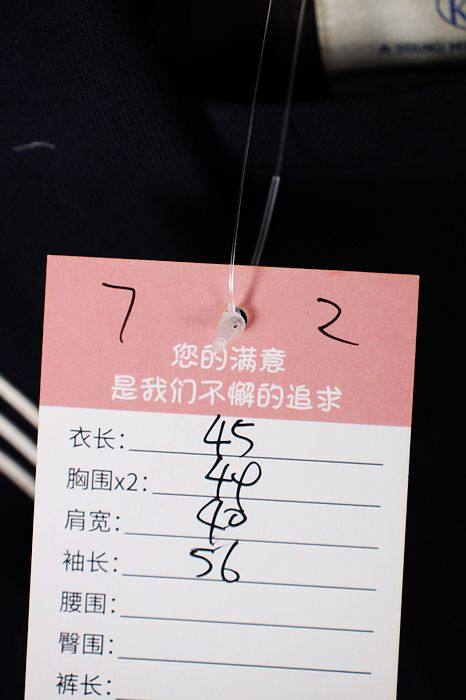 K
7 2
您的满意
是我们不懈的追求
衣长: 45
胸围x2: 49
肩宽: 40
袖长: 56
腰围:
臀围:
裤长: